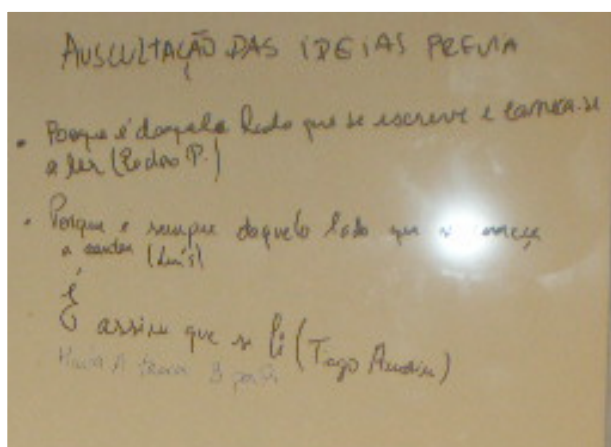 AUSCULTAÇÃO DAS IDEIAS PREVIA
• Porque é daquele lado que se escreve e começa-se
a ler (Pedro P.)
• Porque e sempre daquele lado que se começa
a contar (Luís)
É assim que se lê (Tiago Amorim)